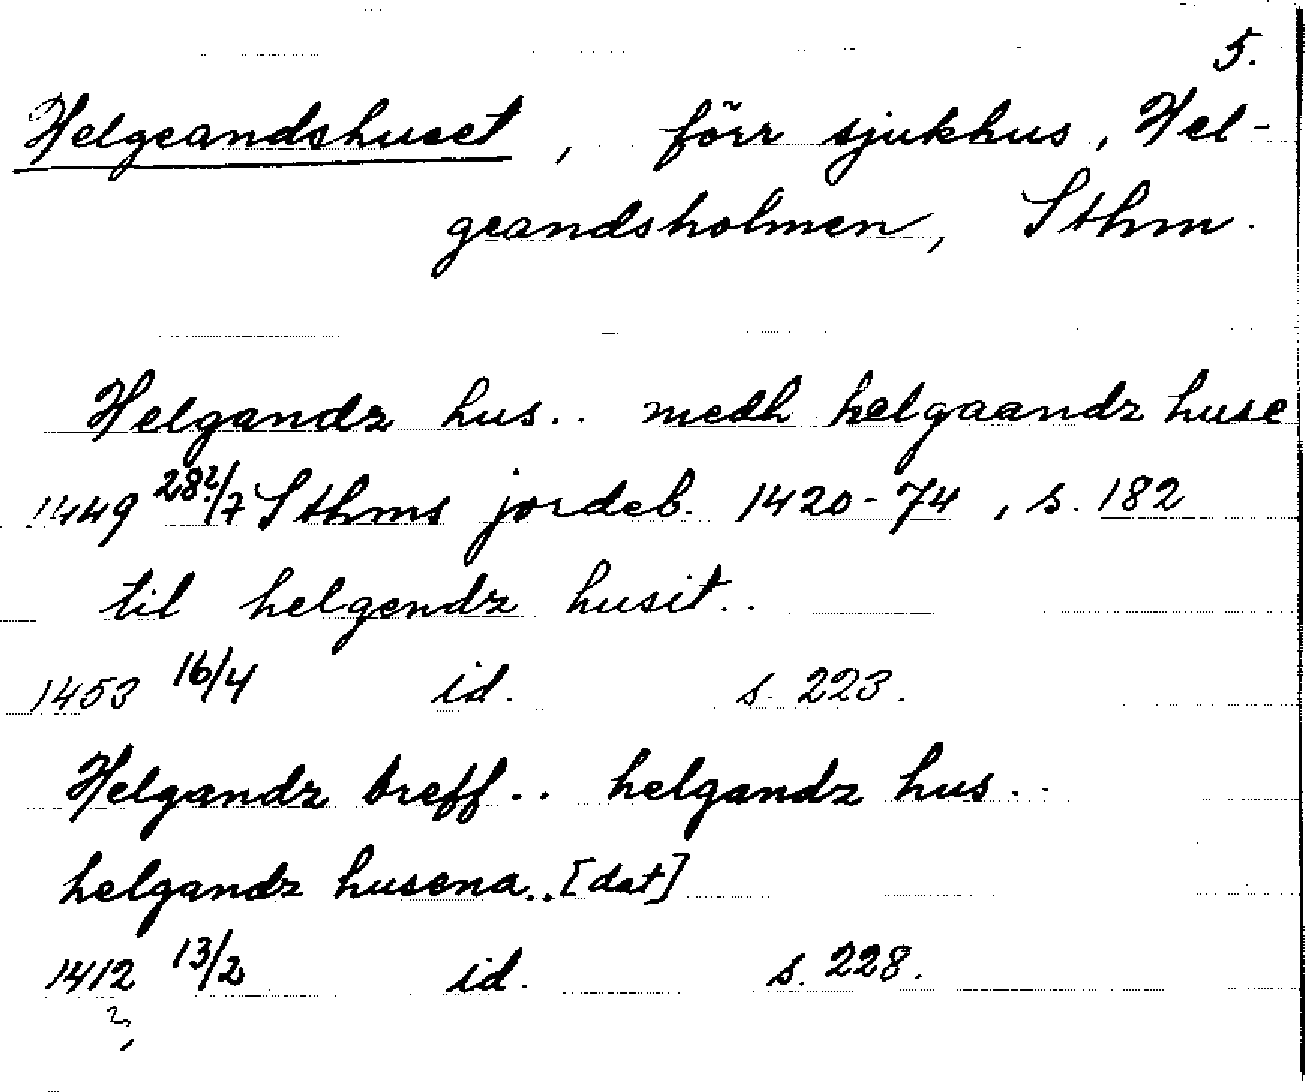 5.
Helgeandshuset, förr sjukhus, Hel-
geandsholmen, Sthm.
Helgandz hus.. medh helgaandz huse
1449 28?/7 Sthms jordeb. 1420-74, s. 182
til helgendz husit..
1453 16/4 id. s. 223.
Helgandz breff.. helgandz hus..
helgandz husena..[dat]
1412 13/2 id. s. 228.
?